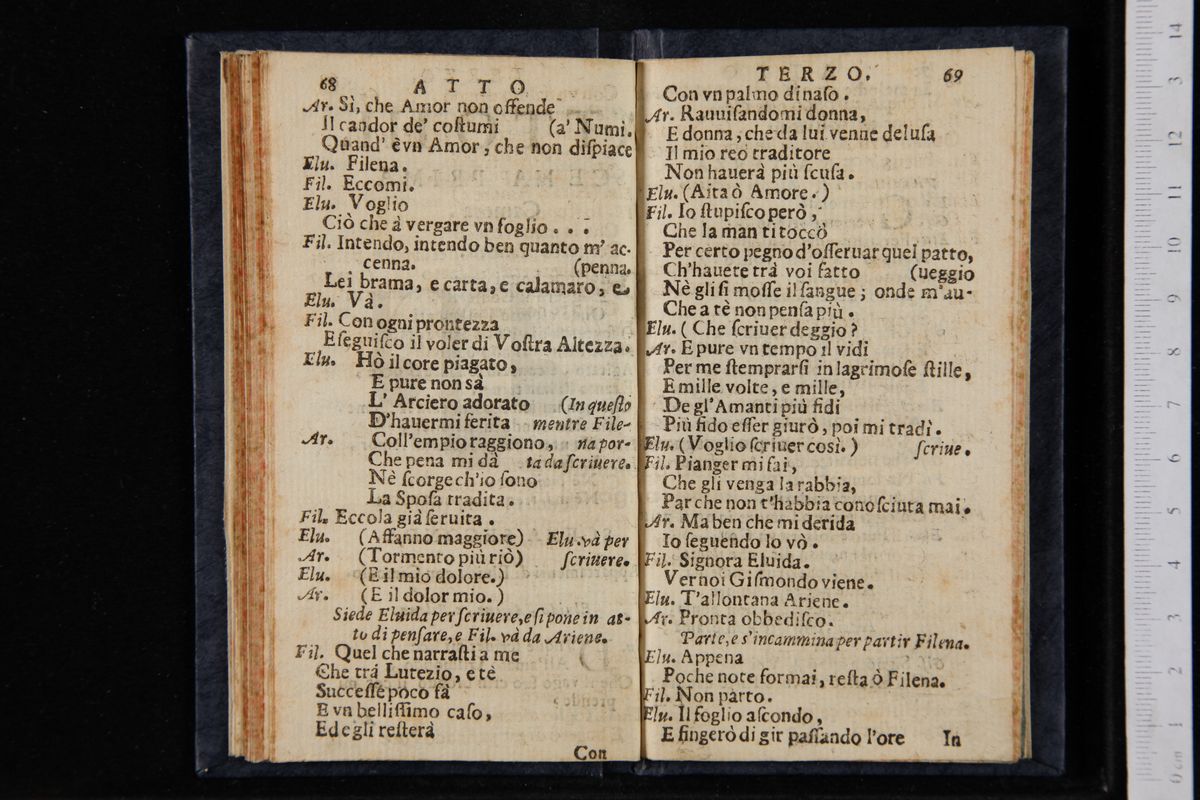 68 ATTO
Ar. Sì, che Amor non offende
Il candor de' coſtumi (a' Numi.
Quand' è vn Amor, che non diſpiace
Elu. Filena.
Fil. Eccomi.
Elu. Voglio
Ciò che à vergare vn foglio . . .
Fil. Intendo, intendo ben quanto m' ac-
cenna. (penna.
Lei brama, e carta, e calamaro, e
Elu. Và.
Fil. Con ogni prontezza
Eſeguiſco il voler di Voſtra Altezza.
Elu. Hò il core piagato,
E pure non sà
L' Arciero adorato (In queſto
D'hauermi ferita mentre File-
Ar. Coll'empio raggiono, na por-
Che pena mi dà ta da ſcriuere.
Nè ſcorge ch'io ſono
La Spoſa tradita.
Fil. Eccola già ſeruita.
Elu. (Affanno maggiore) Elu. và per
Ar. (Tormento più riò) ſcriuere.
Elu. (E il mio dolore.)
Ar. (E il dolor mio.)
Siede Eluida per ſcriuere, e ſi pone in at-
to di penſare, e Fil. và da Ariene.
Fil. Quel che narraſti a me
Che trá Lutezio, e tè
Succeſſe poco fà
E vn belliſſimo caſo,
Ed egli reſterà
Con
TERZO. 69
Con vn palmo di naſo.
Ar. Rauuiſandomi donna,
E donna, che da lui venne deluſa
Il mio reo traditore
Non hauerà più ſcuſa.
Elu. (Aita ò Amore.)
Fil. Io ſtupiſco però,
Che la man ti toccò
Per certo pegno d'oſſeruar quel patto,
Ch'hauete trà voi fatto (ueggio
Nè gli ſi moſſe il ſangue; onde m'au-
Che a tè non penſa più.
Elu. (Che ſcriuer deggio?
Ar. E pure vn tempo il vidi
Per me ſtemprarſi in lagrimoſe ſtille,
E mille volte, e mille,
De gl'Amanti più fidi
Più fido eſſer giurò, poi mi tradì.
Elu. (Voglio ſcriuer così.) ſcriue.
Fil. Pianger mi fai,
Che gli venga la rabbia,
Par che non t'habbia conoſciuta mai.
Ar. Ma ben che mi derida
Io ſeguendo lo vò.
Fil. Signora Eluida.
Ver noi Giſmondo viene.
Elu. T'allontana Ariene.
Ar. Pronta obbediſco.
Parte, e s'incammina per partir Filena.
Elu. Appena
Poche note formai, reſta ò Filena.
Fil. Non parto.
Elu. Il foglio aſcondo,
E fingerò di gir paſſando l'ore In